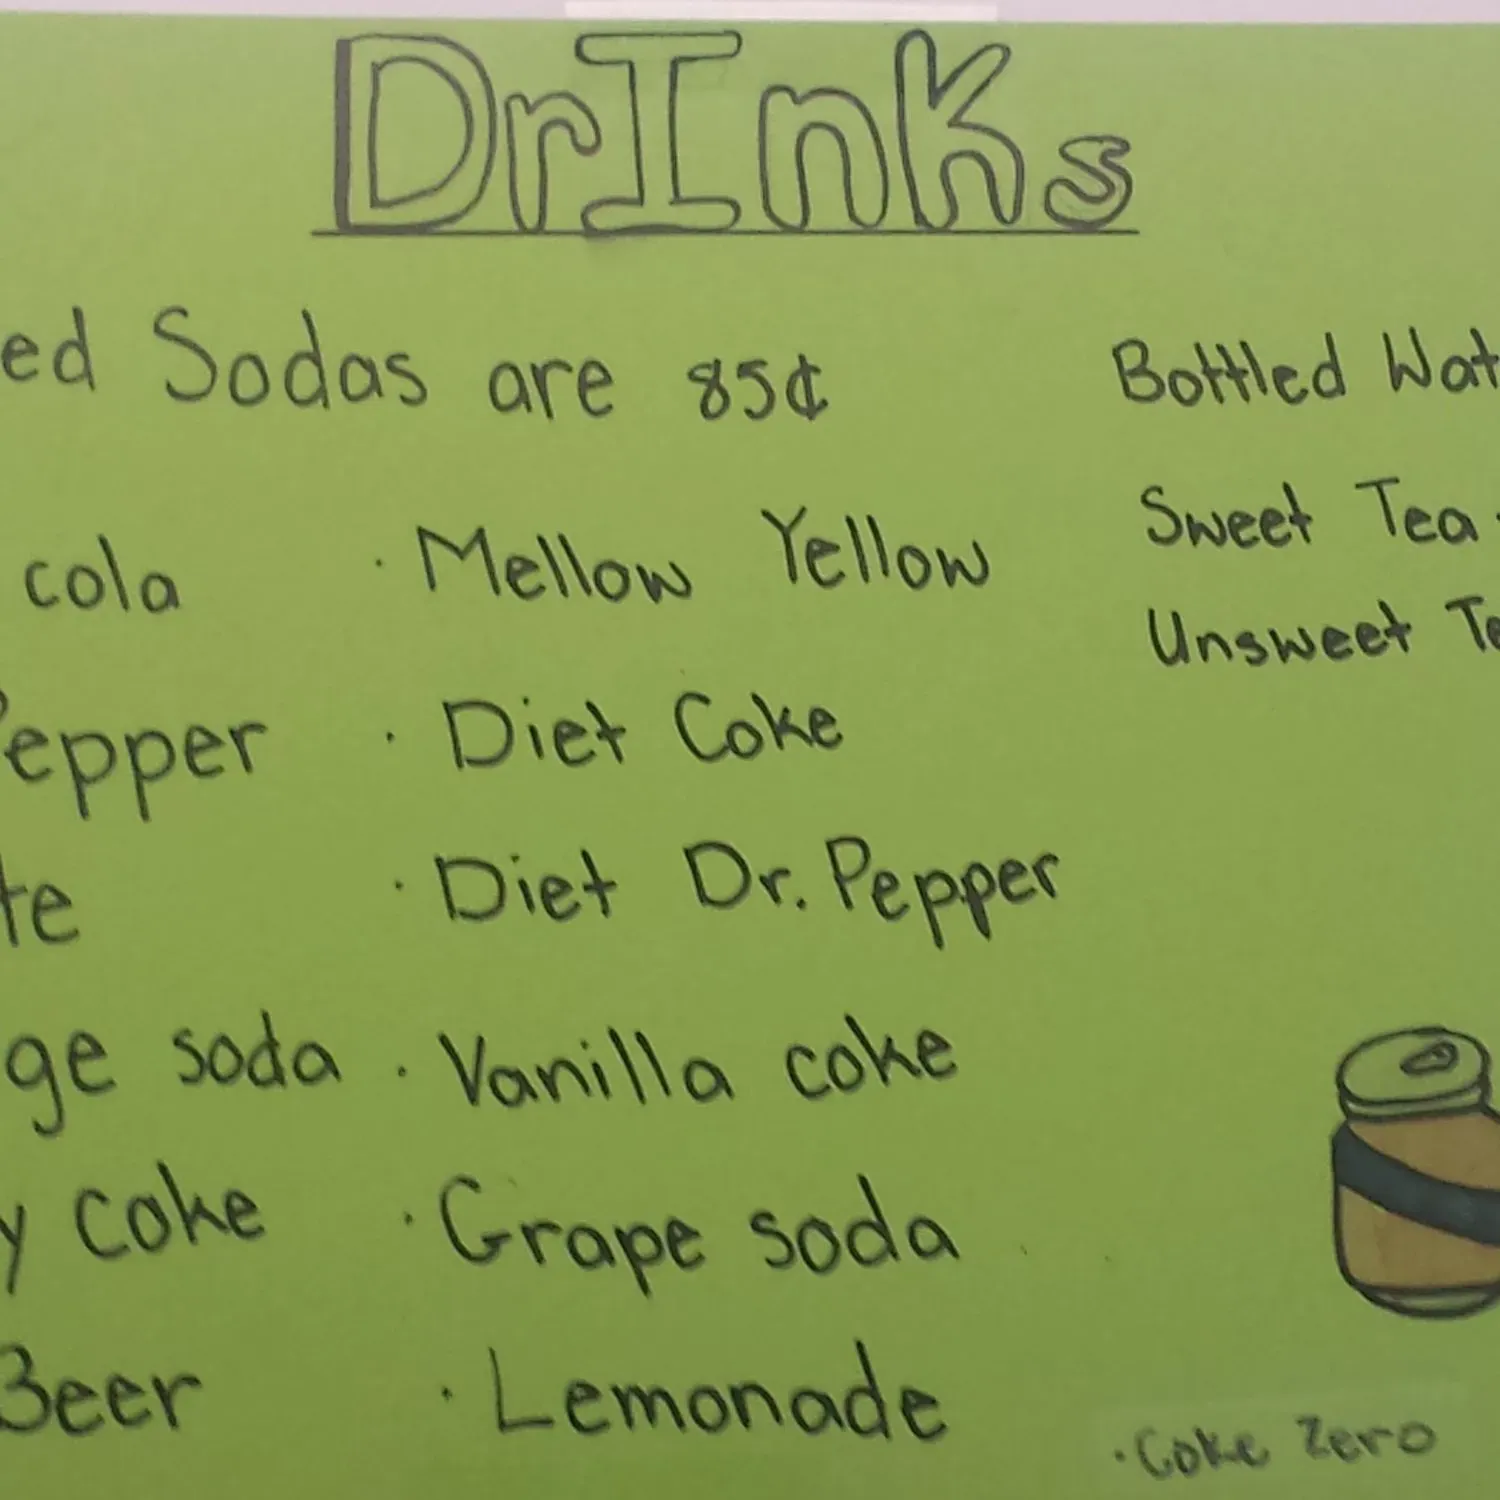 DrInks
ed Sodas are 85¢
cola
· Mellow Yellow
epper
· Diet Coke
te
· Diet Dr. Pepper
ge soda
· Vanilla coke
y coke
· Grape soda
Beer
· Lemonade
Bottled Wat
Sweet Tea
Unsweet Te
· Coke Zero